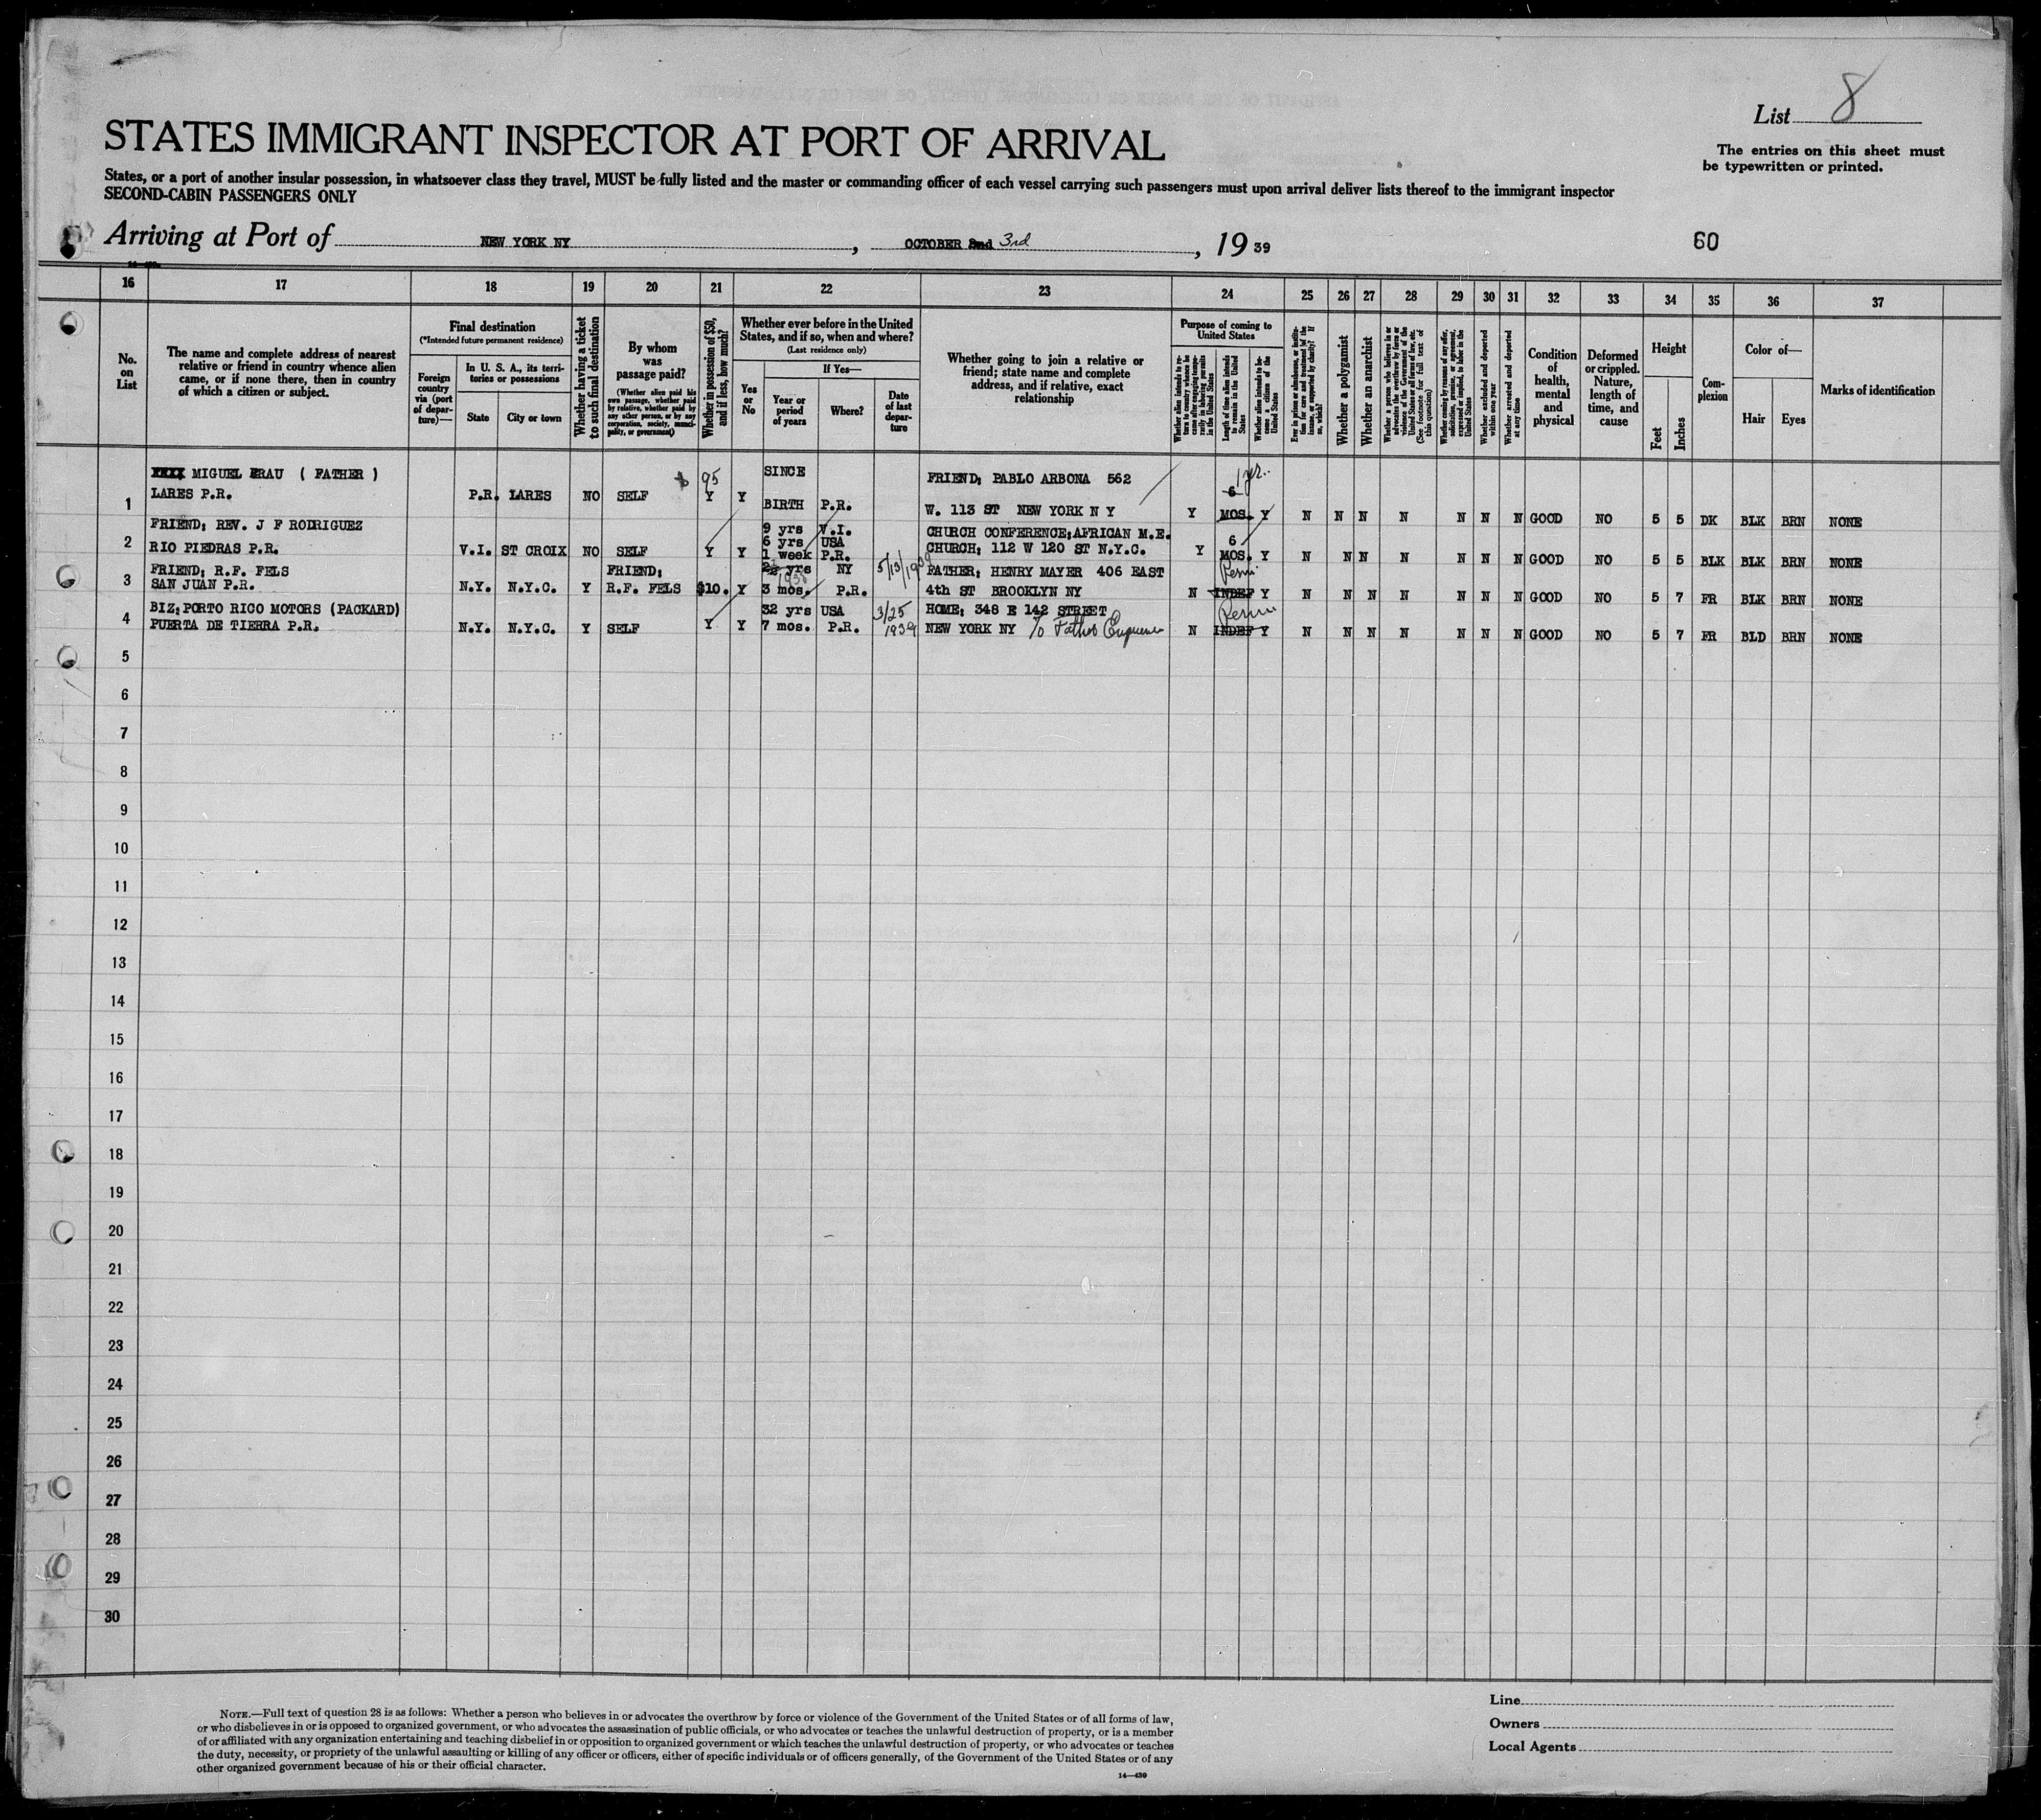 List 8
STATES IMMIGRANT INSPECTOR AT PORT OF ARRIVAL
The entries on this sheet must
be typewritten or printed.
States, or a port of another insular possession, in whatsoever class they travel, MUST be fully listed and the master or commanding officer of each vessel carrying such passengers must upon arrival deliver lists thereof to the immigrant inspector
SECOND-CABIN PASSENGERS ONLY
Arriving at Port of NEW YORK NY, OCTOBER 2nd 3rd, 19 39
60
16 17 18 19 20 21 22 23 24 25 26 27 28 29 30 31 32 33 34 35 36 37
No.
on
List
The name and complete address of nearest
relative or friend in country whence alien
came, or if none there, then in country
of which a citizen or subject.
Final destination
(*Intended future permanent residence)
Foreign
country
via (port
of depar-
ture)—
In U. S. A., its terri-
tories or possessions
State
City or town
Whether having a ticket
to such final destination
By whom
was
passage paid?
(Whether alien paid his
own passage, whether paid
by relative, whether paid by
any other person, or by any
corporation, society, munici-
pality, or government)
Whether in possession of $50,
and if less, how much?
Whether ever before in the United
States, and if so, when and where?
(Last residence only)
Yes
or
No
If Yes—
Year or
period
of years
Where?
Date
of last
depar-
ture
Whether going to join a relative or
friend; state name and complete
address, and if relative, exact
relationship
Purpose of coming to
United States
Whether alien intends to re-
turn to country whence he
came after engaging tempo-
rarily in laboring pursuits
in the United States
Length of time alien intends
to remain in the United
States
Whether alien intends to be-
come a citizen of the
United States
Ever in prison or almshouse, or institu-
tion for care and treatment of the
insane, or supported by charity? If
so, which?
Whether a polygamist
Whether an anarchist
Whether a person who believes in or
advocates the overthrow by force or
violence of the Government of the
United States or all forms of law, etc.
(See footnote for full text of
this question)
Whether coming by reasons of any offer,
solicitation, promise, or agreement,
expressed or implied, to labor in the
United States
Whether excluded and deported
within one year
Whether arrested and deported
at any time
Condition
of
health,
mental
and
physical
Deformed
or crippled.
Nature,
length of
time, and
cause
Height
Feet
Inches
Com-
plexion
Color of—
Hair
Eyes
Marks of identification
MIGUEL FRAU ( FATHER ) 95 SINCE FRIEND; PABLO ARBONA 562 1 yr.
1 LARES P.R. P.R. LARES NO SELF Y Y BIRTH P.R. W. 113 ST NEW YORK N Y Y 6 MOS. Y N N N N N N N GOOD NO 5 5 DK BLK BRN NONE
FRIEND; REV. J F RODRIGUEZ 9 yrs V.I. CHURCH CONFERENCE;AFRICAN M.E.
6 yrs USA
2 RIO PIEDRAS P.R. V.I. ST CROIX NO SELF Y Y 1 week P.R. CHURCH; 112 W 120 ST N.Y.C. Y 6 MOS. Y N N N N N N N GOOD NO 5 5 BLK BLK BRN NONE
FRIEND; R.F. FELS FRIEND; yrs NY 5/13/1939 FATHER; HENRY MAYER 406 EAST
3 SAN JUAN P.R. N.Y. N.Y.C. Y R.F. FELS $10. Y 3 mos. P.R. 4th ST BROOKLYN NY N INDEF Y N N N N N N N GOOD NO 5 7 FR BLK BRN NONE
BIZ;PORTO RICO MOTORS (PACKARD) 32 yrs USA 3/25 HOME; 348 E 142 STREET
4 PUERTA DE TIERRA P.R. N.Y. N.Y.C. Y SELF Y Y 7 mos. P.R. 1939 NEW YORK NY N INDEF Y N N N N N N N GOOD NO 5 7 FR BLD BRN NONE
5
6
7
8
9
10
11
12
13
14
15
16
17
18
19
20
21
22
23
24
25
26
27
28
29
30
NOTE.—Full text of question 28 is as follows: Whether a person who believes in or advocates the overthrow by force or violence of the Government of the United States or of all forms of law,
or who disbelieves in or is opposed to organized government, or who advocates the assassination of public officials, or who advocates or teaches the unlawful destruction of property, or is a member
of or affiliated with any organization entertaining and teaching disbelief in or opposition to organized government or which teaches the unlawful destruction of property, or who advocates or teaches
the duty, necessity, or propriety of the unlawful assaulting or killing of any officer or officers, either of specific individuals or of officers generally, of the Government of the United States or of any
other organized government because of his or their official character.
14—430
Line
Owners
Local Agents